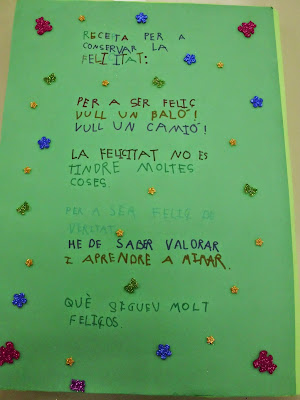 RECEITA PER A
CONSERVAR LA
FELICITAT:
PER A SER FELIÇ
VULL UN BALÓ!
VULL UN CAMIÓ!
LA FELICITAT NO ES
TINDRE MOLTES
COSES.
PER A SER FELIÇ DE
VERITAT
HE DE SABER VALORAR
I APRENDRE A MIRAR.
QUÈ SIGUEU MOLT
FELIÇOS.